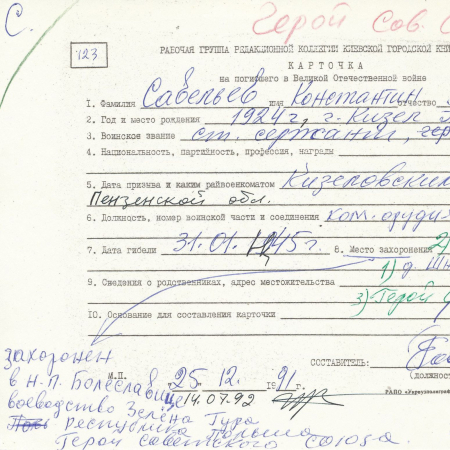 С.
Герой Сов. С
123
РАБОЧАЯ ГРУППА РЕДАКЦИОННОЙ КОЛЛЕГИИ КИЕВСКОЙ ГОРОДСКОЙ КНИ
КАРТОЧКА
на погибшего в Великой Отечественной войне
1. Фамилия Савельев имя Константин отчество
2. Год и место рождения 1924г, г. Кизел
3. Воинское звание ст. сержант, гер
4. Национальность, партийность, профессия, награды
5. Дата призыва и каким райвоенкоматом Кизеловским
Пензенской обл.
6. Должность, номер воинской части и соединения ком. оруди
7. Дата гибели 31.01.1945г. 8. Место захоронения 2)
1) д. Шн
9. Сведения о родственниках, адрес местожительства
3) Герой С
10. Основание для составления карточки
захоронен СОСТАВИТЕЛЬ:
М.П. (должност
в н.п. Болеславице 25. 12. 1991г.
воеводство Зелёна Гура 14.07.92 РАПО «Укрвузполиграф
республика Польша
Герой Советского Союза.